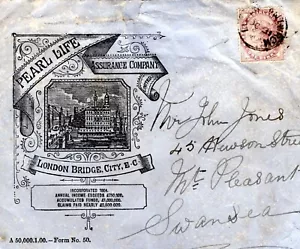 PEARL LIFE
ASSURANCE COMPANY
LONDON BRIDGE, CITY, E.C
INCORPORATED 1864.
ANNUAL INCOME EXCEEDS
ACCUMULATED FUNDS,
CLAIMS PAID NEARLY
A 50,000.1.00.—Form No. 50.
Mr John Jones
45 Hewson Street
Mt Pleasant
Swansea